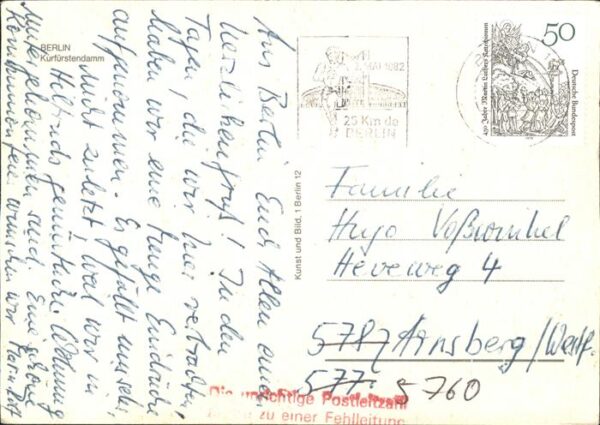 BERLIN
Kurfürstendamm
Aus Berlin Euch Allen einen
herzlichen Gruß! In den
Tagen, die wir hier verbrachten,
haben wir eine Menge Eindrücke
aufgenommen. Es gefällt uns sehr,
nicht zuletzt weil wir in
gemütliche Wohnung
untergekommen sind. Eine schöne
wünschen wir
Kunst und Bild, 1 Berlin 12
2. MAI 1982
25 Km de
BERLIN
50
450 Jahre Martin Luthers Katechismus
Deutsche Bundespost
Familie
Hugo Voßwinkel
Heveweg 4
Arnsberg/Westf.
5760
Die unrichtige Postleitzahl
zu einer Fehlleitung